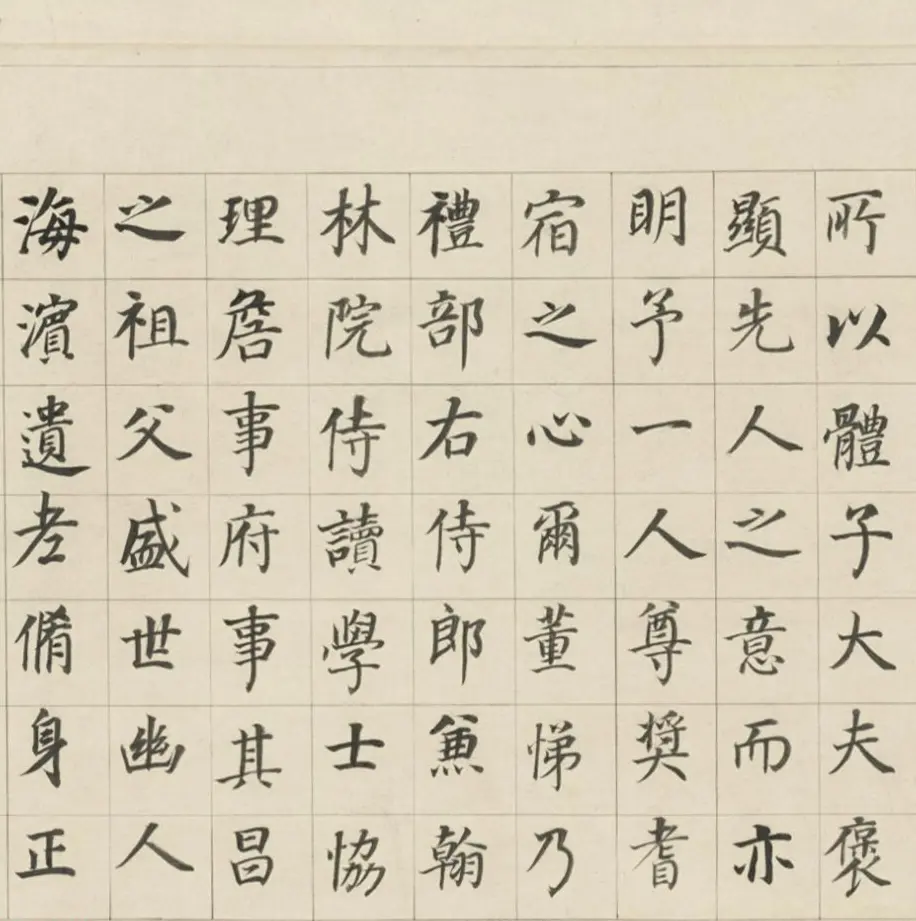 所以體子大夫褒
顯先人之意而亦
明予一人尊奬耆
宿之心爾董悌乃
禮部右侍郎兼翰
林院侍讀學士恊
理詹事府事其昌
之祖父盛世幽人
海濵遺老脩身正